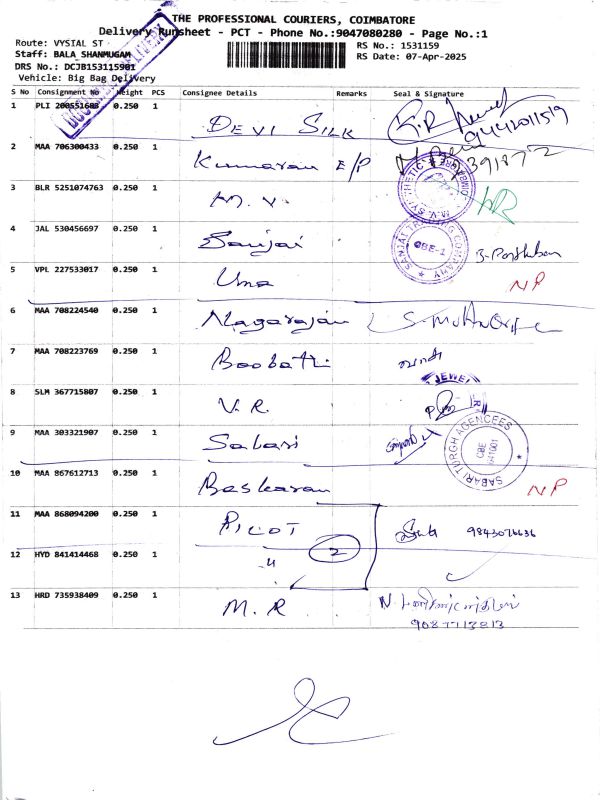 THE PROFESSIONAL COURIERS, COIMBATORE
Delivery Runsheet - PCT - Phone No.:9047080280 - Page No.:1
Route: VYSIAL ST
RS No.: 1531159
Staff: BALA SHANMUGAM
RS Date: 07-Apr-2025
DRS No.: DCJB153115901
Vehicle: Big Bag Delivery
S No Consignment No Weight PCS Consignee Details Remarks Seal & Signature
1 PLI 200551685 0.250 1 DEVI SILK
2 MAA 706300433 0.250 1 Kumaran E/P
3 BLR 5251074763 0.250 1 M. V.
4 JAL 530456697 0.250 1 Sanjai
SANJAI TRADING COMPANY CBE-1
5 VPL 227533017 0.250 1 Uma NP
6 MAA 708224540 0.250 1 Nagarajan
7 MAA 708223769 0.250 1 Boobathi
JEWEL
8 SLM 367715807 0.250 1 V. R.
9 MAA 303321907 0.250 1 Sabari
SABARI TURGH AGENCEES CBE 641001
10 MAA 867612713 0.250 1 Baskaran NP
11 MAA 868094200 0.250 1 PILOT 9843076636
12 HYD 841414468 0.250 1 " 2
13 HRD 735938409 0.250 1 M. R